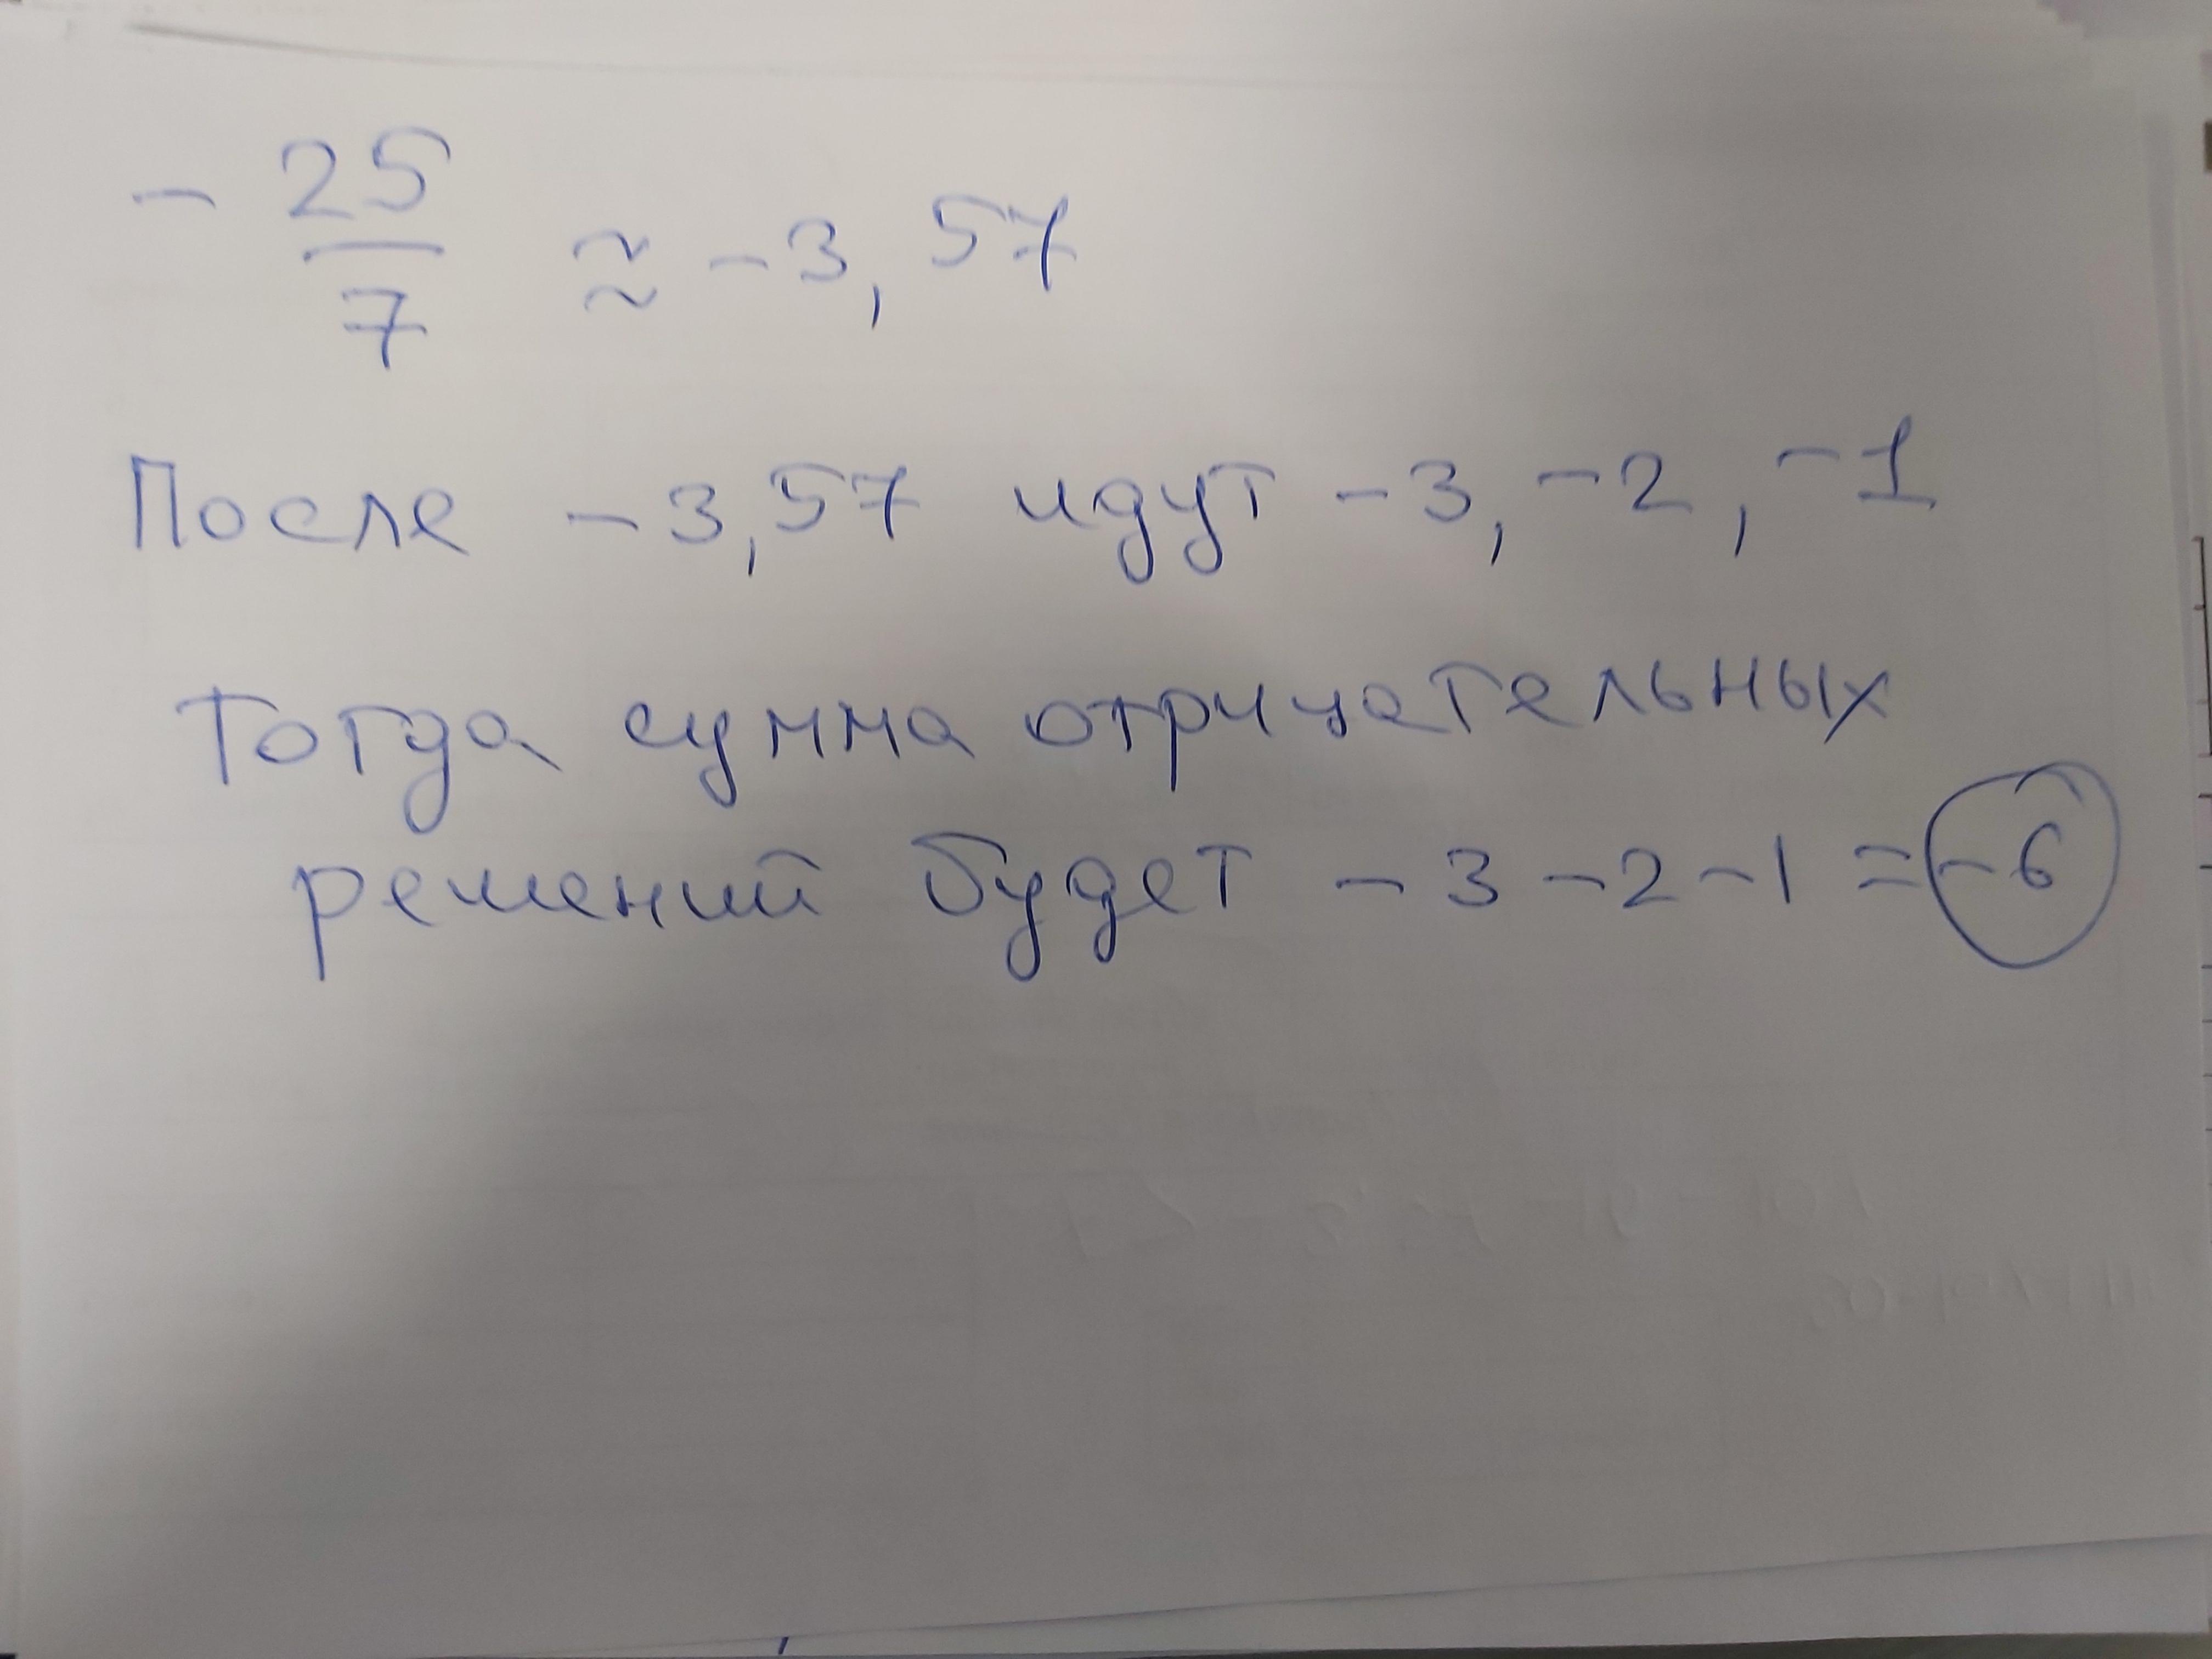 - 25/7 ≈ -3,57
После -3,57 идут -3, -2, -1
Тогда сумма отрицательных
решений будет -3-2-1 = -6